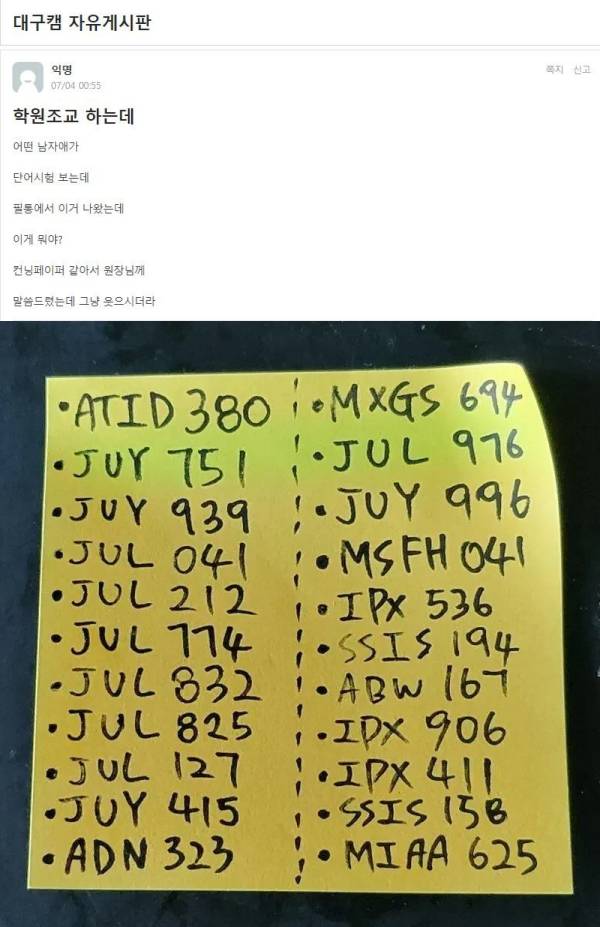 대구캠 자유게시판
익명
쪽지 신고
07/04 00:55
학원조교 하는데
어떤 남자애가
단어시험 보는데
필통에서 이거 나왔는데
이게 뭐야?
컨닝페이퍼 같아서 원장님께
말씀드렸는데 그냥 웃으시더라
•ATID 380
•JUY 751
•JUY 939
•JUL 041
•JUL 212
•JUL 774
•JUL 832
•JUL 825
•JUL 127
•JUY 415
•ADN 323
•MXGS 694
•JUL 976
•JUY 996
•MSFH 041
•IPX 536
•SSIS 194
•ABW 167
•IPX 906
•IPX 411
•SSIS 158
•MIAA 625